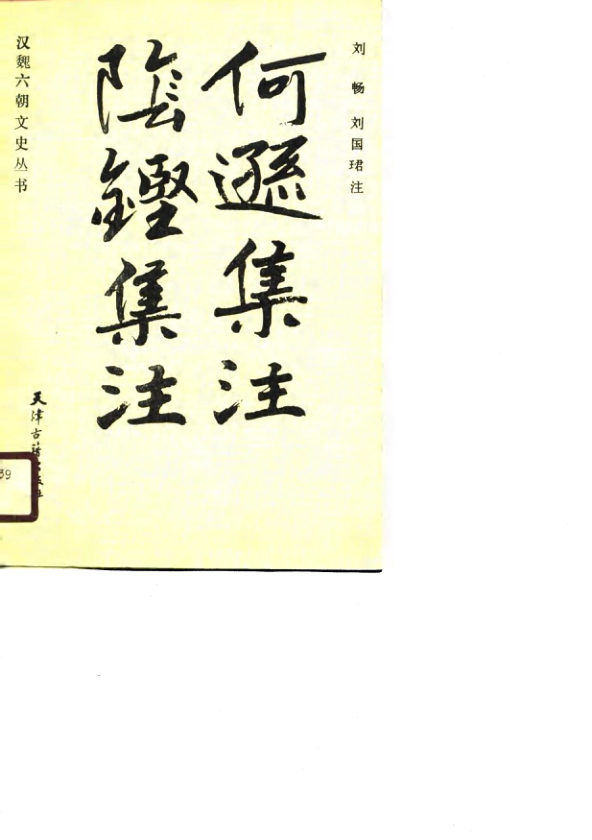 刘畅 刘国珺注
何遜集注
陰鏗集注
汉魏六朝文史丛书
天津古籍出版社
39